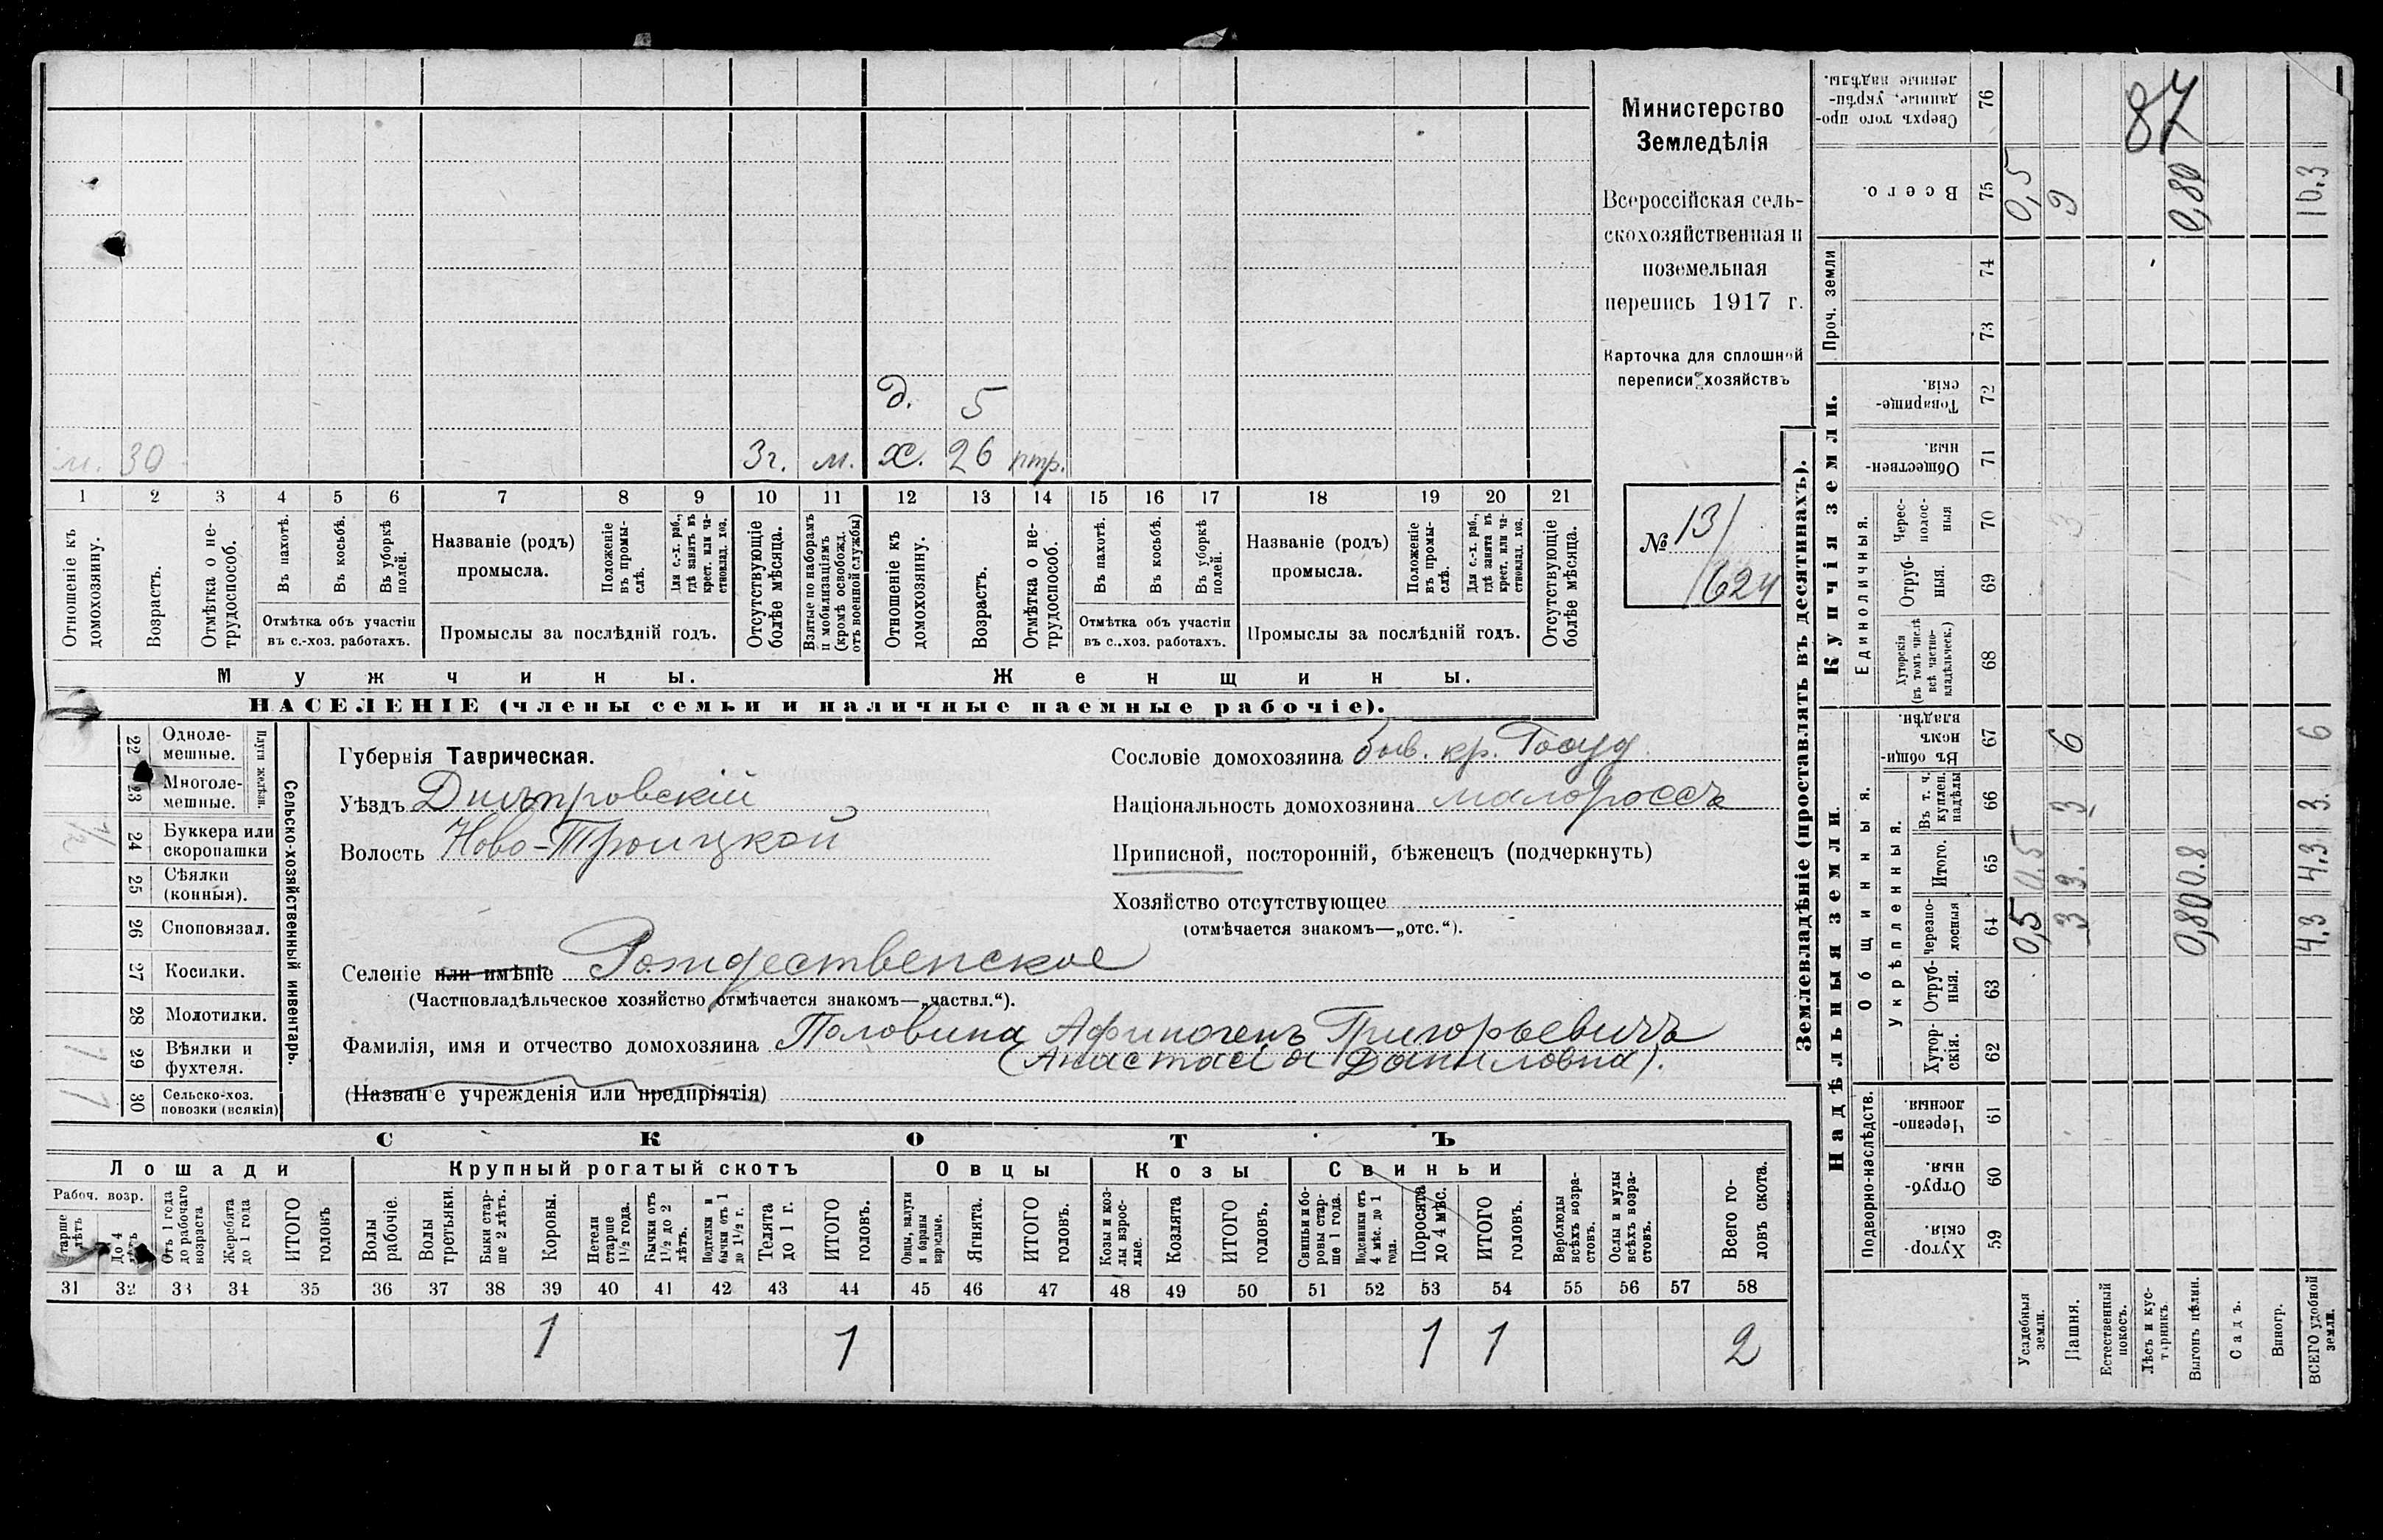 д. 5
м. 30 3г. м. х. 26 птр.
1 2 3 4 5 6 7 8 9 10 11 12 13 14 15 16 17 18 19 20 21
Отношеніе къ домохозяину.
Возрастъ.
Отмѣтка о нетрудоспособ.
Въ пахотѣ.
Въ косьбѣ.
Въ уборкѣ полей.
Отмѣтка объ участіи
въ с.-хоз. работахъ.
Названіе (родъ)
промысла.
Положеніе въ промыслѣ.
Для с.-х. раб., гдѣ занятъ въ крест. или частновлад. хоз.
Промыслы за послѣдній годъ.
Отсутствующіе болѣе мѣсяца.
Взятые по наборамъ и мобилизаціямъ (кромѣ освобожд. отъ военной службы)
Отношеніе къ домохозяину.
Возрастъ.
Отмѣтка о нетрудоспособ.
Въ пахотѣ.
Въ косьбѣ.
Въ уборкѣ полей.
Отмѣтка объ участіи
въ с..хоз. работахъ.
Названіе (родъ)
промысла.
Положеніе въ промыслѣ.
Для с.-х. раб., гдѣ занята въ крест. или частновлад. хоз.
Промыслы за послѣдній годъ.
Отсутствующіе болѣе мѣсяца.
Мужчины.
Женщины.
НАСЕЛЕНІЕ (члены семьи и наличные наемные рабочіе).
Министерство
Земледѣлія
Всероссійская сель-
скохозяйственная и
поземельная
перепись 1917 г.
Карточка для сплошной
переписи хозяйствъ
№ 13/
/624
Сельско-хозяйственный инвентарь.
Плуги желѣзн.
22 Одноле-
мешные.
23 Многоле-
мешные.
24 Буккера или
скоропашки
25 Сѣялки
(конныя).
26 Сноповязал.
27 Косилки.
28 Молотилки.
29 Вѣялки и
фухтеля.
1
30 Сельско-хоз.
повозки (всякія)
1
Губернія Таврическая.
Уѣздъ Днѣпровскій
Волость Ново-Троицкой
Селеніе или имѣніе Рождественское
(Частновладѣльческое хозяйство отмѣчается знакомъ—„частвл.“).
Фамилія, имя и отчество домохозяина Половина Афиногенъ Григорьевичъ
(Анастасія Даниловна).
(Названіе учрежденія или предпріятія)
Сословіе домохозяина быв. кр. Госуд.
Національность домохозяина малороссъ
Приписной, посторонній, бѣженецъ (подчеркнуть)
Хозяйство отсутствующее
(отмѣчается знакомъ—„отс.“).
СКОТЪ
Лошади
Крупный рогатый скотъ
Овцы
Козы
Свиньи
Рабоч. возр.
старше лѣтъ
До 4 лѣтъ
Отъ 1 года до рабочаго возраста
Жеребята до 1 года
ИТОГО головъ
Волы рабочіе.
Волы третьяки.
Быки старше 2 лѣтъ.
Коровы.
Нетели старше 1 1/2 года.
Бычки отъ 1 1/2 до 2 лѣтъ.
Подтелки и бычки отъ 1 до 1 1/2 г.
Телята до 1 г.
ИТОГО головъ.
Овцы, валухи и бараны взрослые.
Ягнята.
ИТОГО головъ.
Козы и козлы взрослые.
Козлята
ИТОГО головъ.
Свиньи и боровы старше 1 года.
Подсвинки отъ 4 мѣс. до 1 года.
Поросята до 4 мѣс.
ИТОГО головъ.
Верблюды всѣхъ возрастовъ.
Ослы и мулы всѣхъ возрастовъ.
Всего головъ скота.
31 32 33 34 35 36 37 38 39 40 41 42 43 44 45 46 47 48 49 50 51 52 53 54 55 56 57 58
1 1 1 1 2
Землевладѣніе (проставлять въ десятинахъ).
Надѣльныя земли.
Купчія земли.
Проч. земли
Подворно-наслѣдств.
Общинныя.
Укрѣпленныя.
Единоличныя.
Хуторскія. 59
Отрубныя. 60
Черезполосныя. 61
Хуторскія. 62
Отрубныя. 63
Черезполосныя 64
Итого. 65
Въ т. ч. куплен. надѣлы 66
Въ общинномъ владѣн. 67
Хуторскія (въ томъ числѣ всѣ частновладѣльческ.) 68
Отрубныя. 69
Чересполосныя 70
Общественныя. 71
Товарищескія. 72
73
74
Всего. 75
Сверхъ того проданные, укрѣпленные надѣлы. 76
87
Усадебныя земли. 0,5 0.5 0,5
Пашня. 3 3. 3 6 3 9
Естественный покосъ.
Лѣсъ и кустарникъ.
Выгонъ цѣлин. 0,80 0.8 0,80
Садъ.
Виногр.
ВСЕГО удобной земли. 4,3 4,3 3. 6 10,3